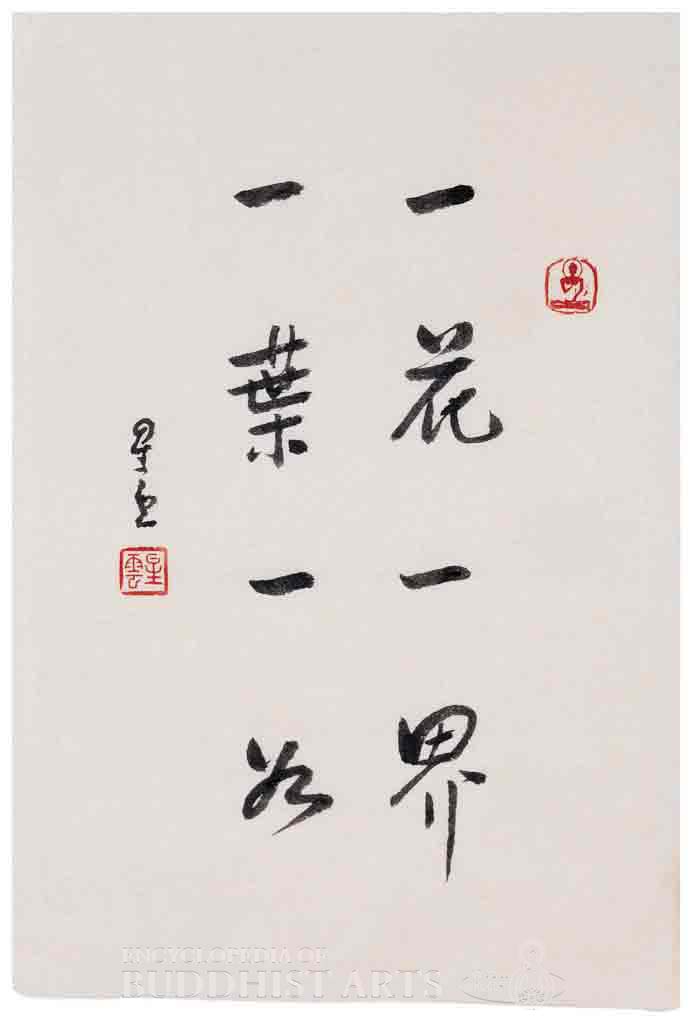 一花一界
一葉一
星雲
星雲
ENCYCLOPEDIA OF
BUDDHIST ARTS